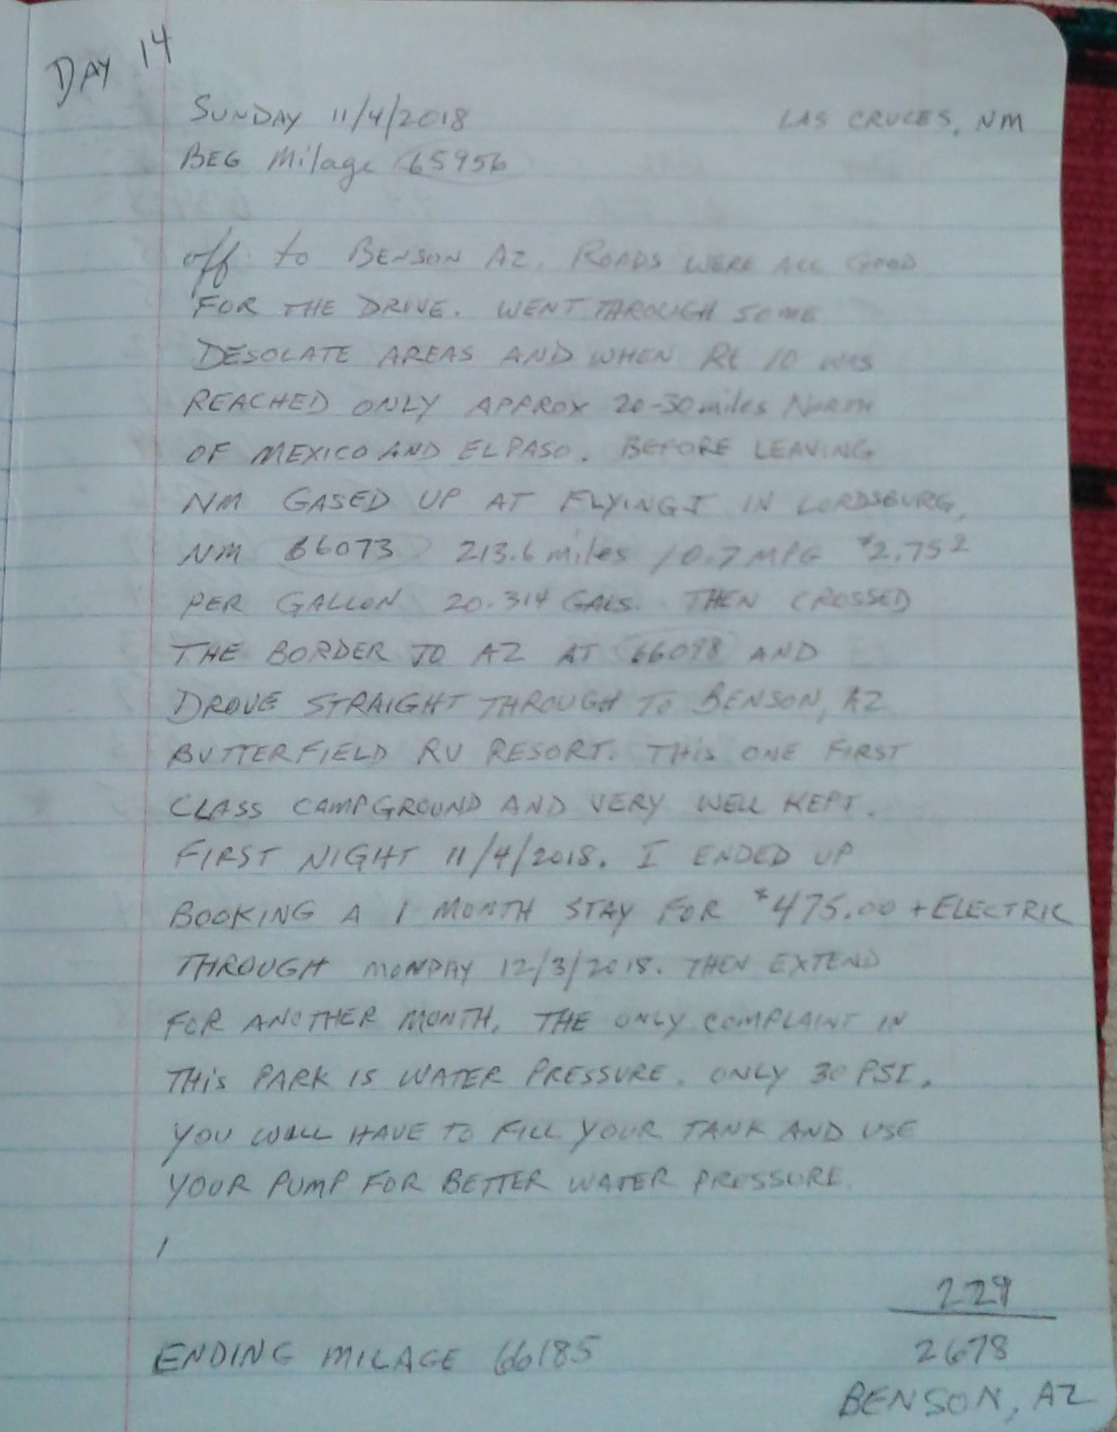 DAY 14
SUNDAY 11/4/2018 LAS CRUCES, NM
BEG Milage 65956
off to BENSON AZ. ROADS WERE ALL GOOD
FOR THE DRIVE. WENT THROUGH SOME
DESOLATE AREAS AND WHEN Rt 10 WAS
REACHED ONLY APPROX 20-30 miles NORTH
OF MEXICO AND EL PASO. BEFORE LEAVING
NM GASED UP AT FLYING J IN LORDSBURG,
NM 66073 213.6 miles 10.7 MPG $2.75 2
PER GALLON 20.314 GALS. THEN CROSSED
THE BORDER TO AZ AT 66098 AND
DROVE STRAIGHT THROUGH TO BENSON, AZ
BUTTERFIELD RV RESORT. THIS ONE FIRST
CLASS CAMPGROUND AND VERY WELL KEPT.
FIRST NIGHT 11/4/2018. I ENDED UP
BOOKING A 1 MONTH STAY FOR $475.00 + ELECTRIC
THROUGH MONDAY 12/3/2018. THEN EXTEND
FOR ANOTHER MONTH, THE ONLY COMPLAINT IN
THIS PARK IS WATER PRESSURE. ONLY 30 PSI.
YOU WILL HAVE TO FILL YOUR TANK AND USE
YOUR PUMP FOR BETTER WATER PRESSURE.
/
229
ENDING MILAGE 66185 2678
BENSON, AZ